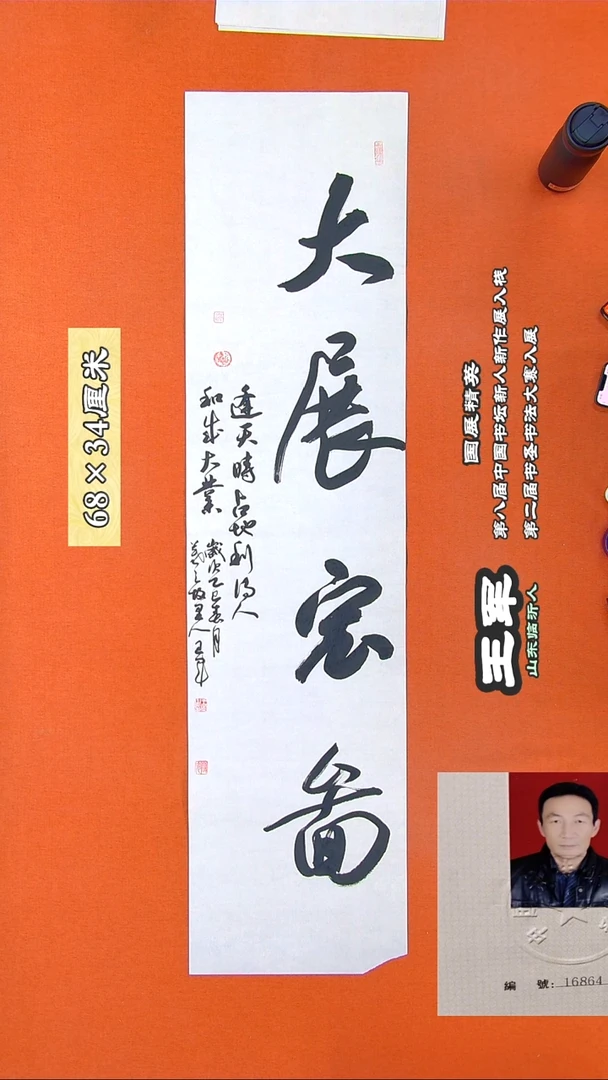 大展宏图
逢天時占地利得人
和成大業
歲次乙巳春月
羲之故里人王军
68×34厘米
国展精英
第八届中国书坛新人新作展入展
第二届书圣书法大赛入展
王军
山东临沂人
編 號: 16864